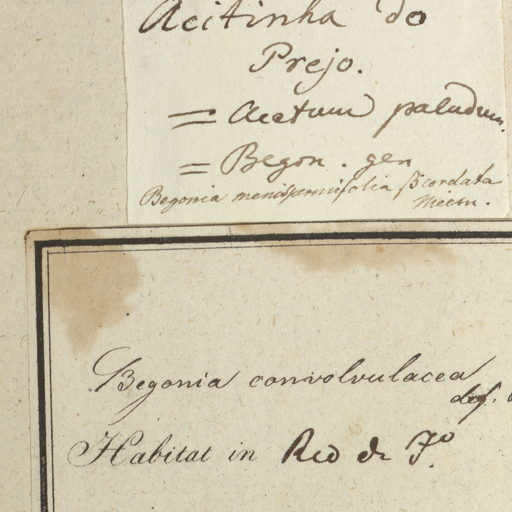 Acitinha do
Prejo.
= Acetum paludum.
= Begon. gen
Begonia menispermifolia β cordata
Meisn.
Begonia convolvulacea
Habitat in Rio de Jo.